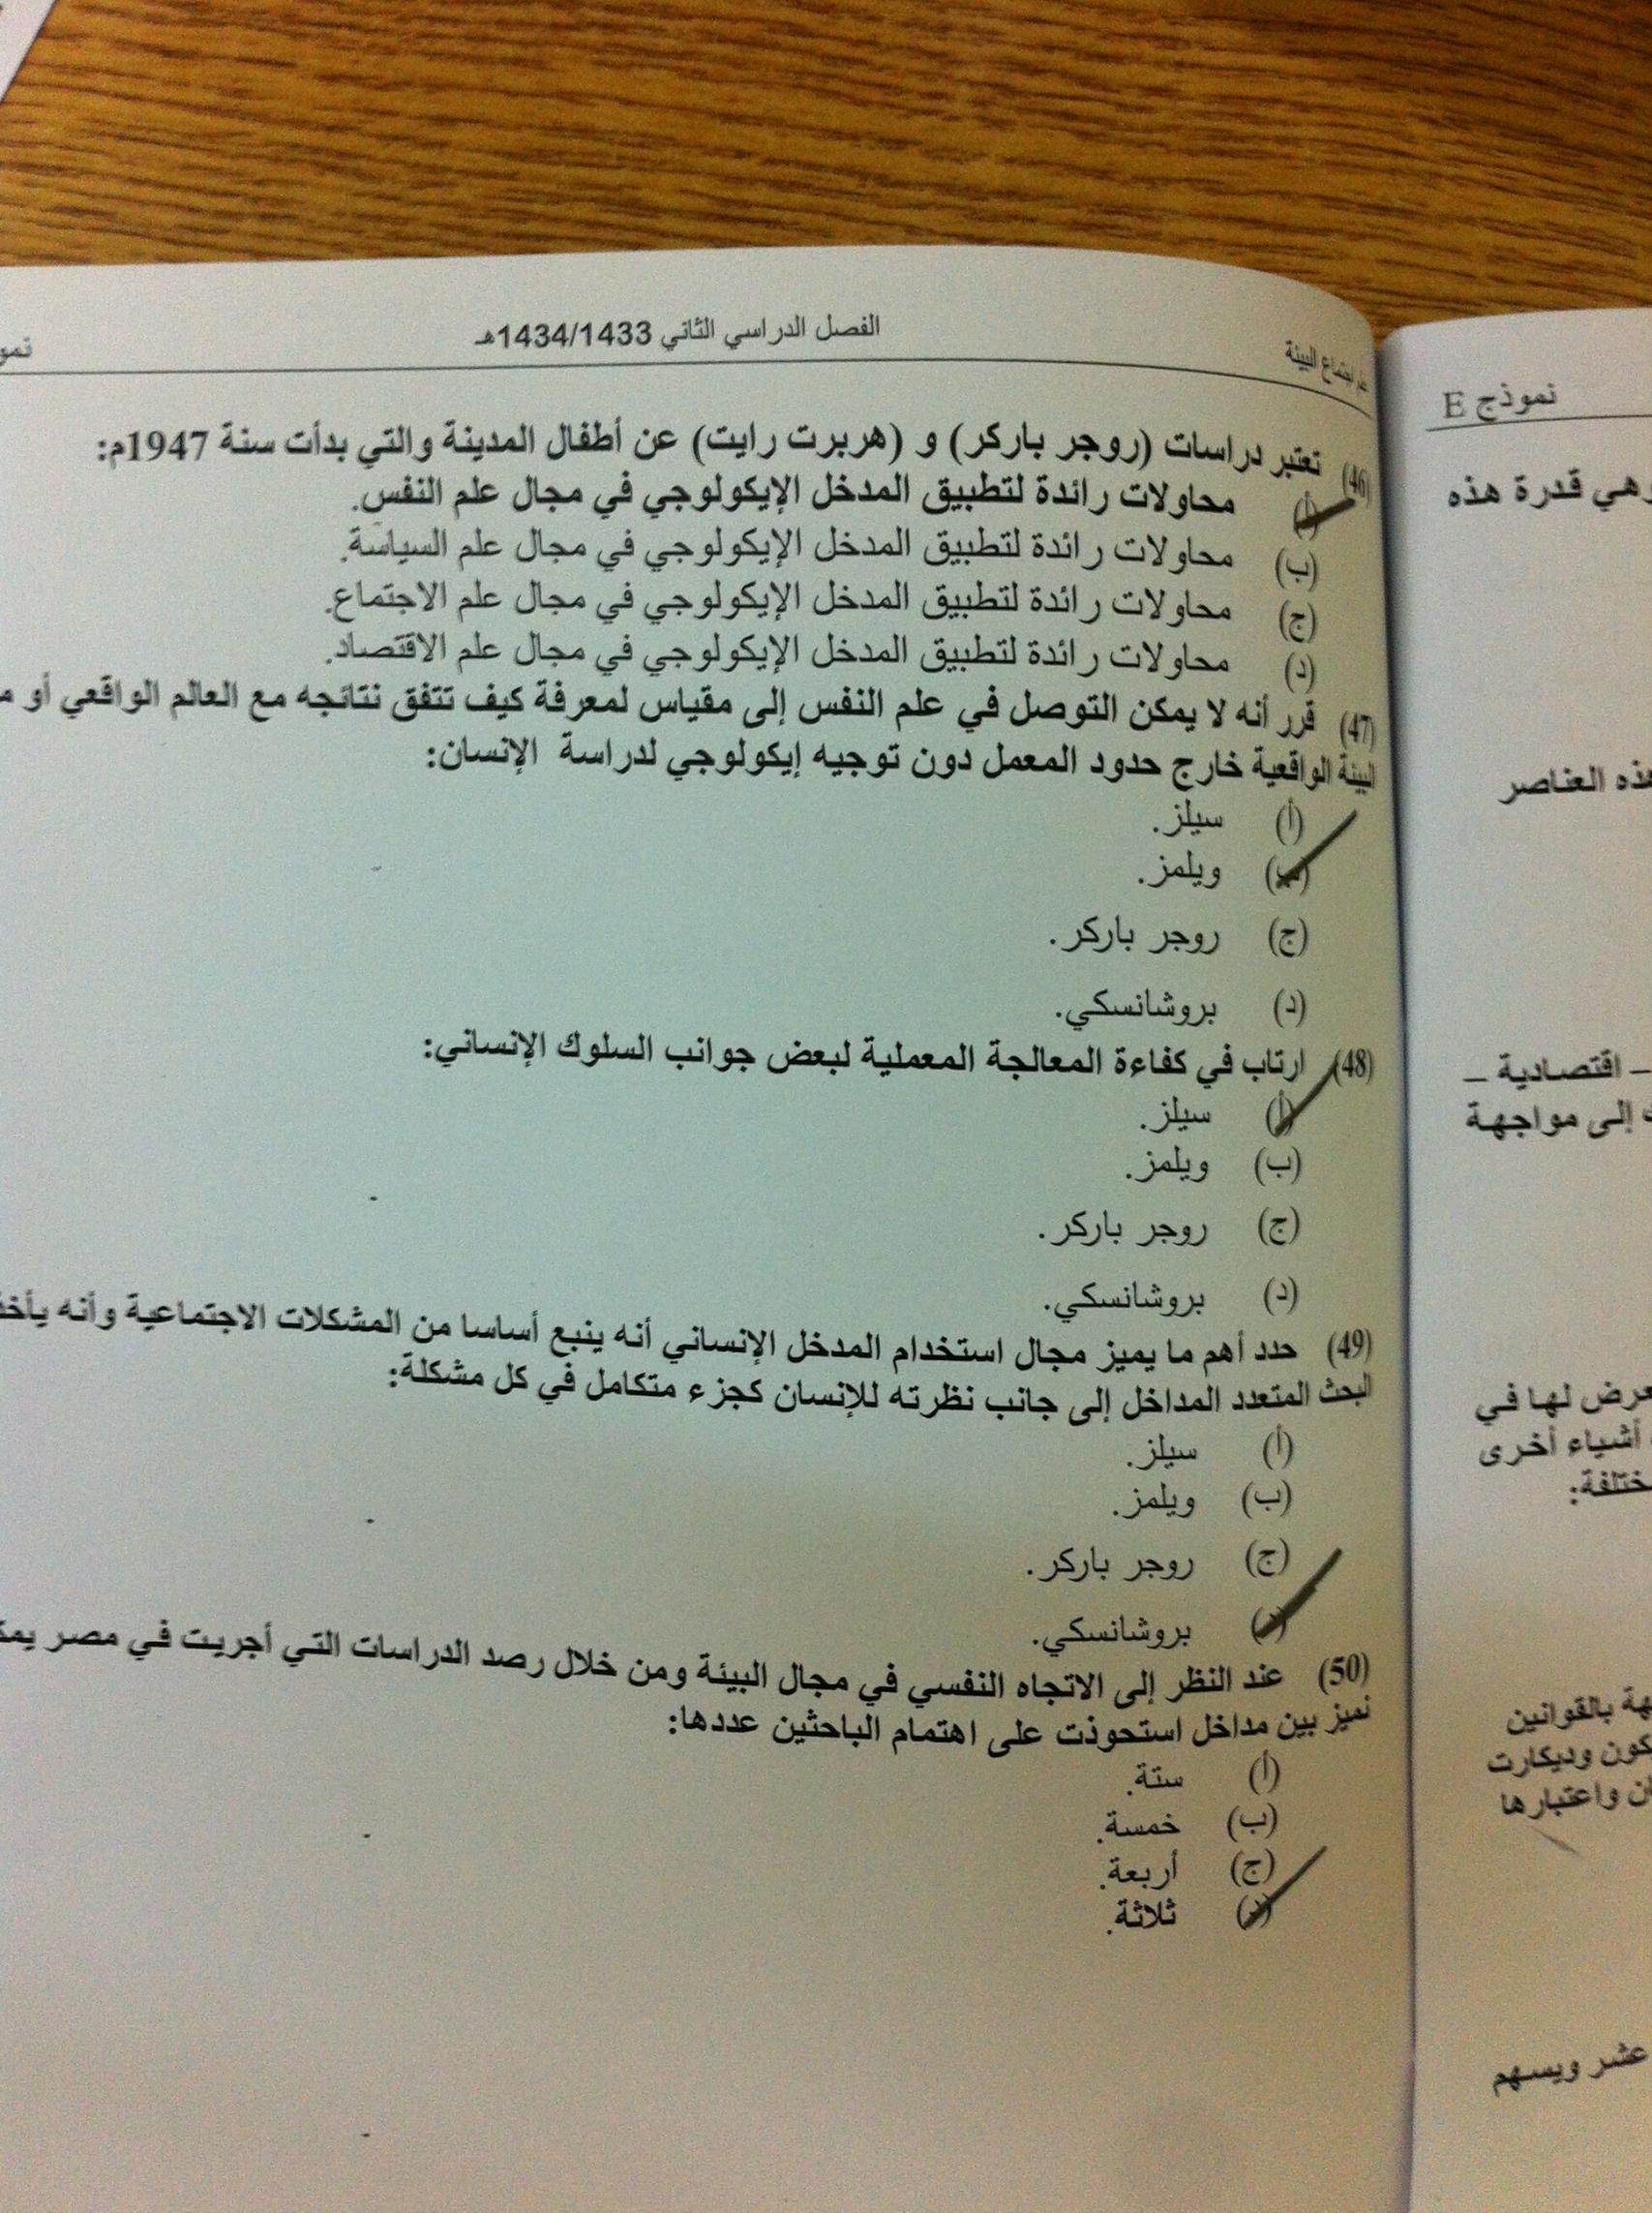 الفصل الدراسي الثاني 1434/1433هـ
علم اجتماع البيئة
(46) تعتبر دراسات (روجر باركر) و (هربرت رايت) عن أطفال المدينة والتي بدأت سنة 1947م:
(أ) محاولات رائدة لتطبيق المدخل الإيكولوجي في مجال علم النفس.
(ب) محاولات رائدة لتطبيق المدخل الإيكولوجي في مجال علم السياسة.
(ج) محاولات رائدة لتطبيق المدخل الإيكولوجي في مجال علم الاجتماع.
(د) محاولات رائدة لتطبيق المدخل الإيكولوجي في مجال علم الاقتصاد.
(47) قرر أنه لا يمكن التوصل في علم النفس إلى مقياس لمعرفة كيف تتفق نتائجه مع العالم الواقعي أو
البيئة الواقعية خارج حدود المعمل دون توجيه إيكولوجي لدراسة الإنسان:
(أ) سيلز.
(ب) ويلمز.
(ج) روجر باركر.
(د) بروشانسكي.
(48) ارتاب في كفاءة المعالجة المعملية لبعض جوانب السلوك الإنساني:
(أ) سيلز.
(ب) ويلمز.
(ج) روجر باركر.
(د) بروشانسكي.
(49) حدد أهم ما يميز مجال استخدام المدخل الإنساني أنه ينبع أساسا من المشكلات الاجتماعية وأنه
البحث المتعدد المداخل إلى جانب نظرته للإنسان كجزء متكامل في كل مشكلة:
(أ) سيلز.
(ب) ويلمز.
(ج) روجر باركر.
(د) بروشانسكي.
(50) عند النظر إلى الاتجاه النفسي في مجال البيئة ومن خلال رصد الدراسات التي أجريت في مصر
نميز بين مداخل استحوذت على اهتمام الباحثين عددها:
(أ) ستة.
(ب) خمسة.
(ج) أربعة.
(د) ثلاثة.
نموذج E
وهي قدرة هذه
هذه العناصر
– اقتصادية –
إلى مواجهة
لها في
أشياء أخرى
بالقوانين
وديكارت
واعتبارها
عشر ويسهم